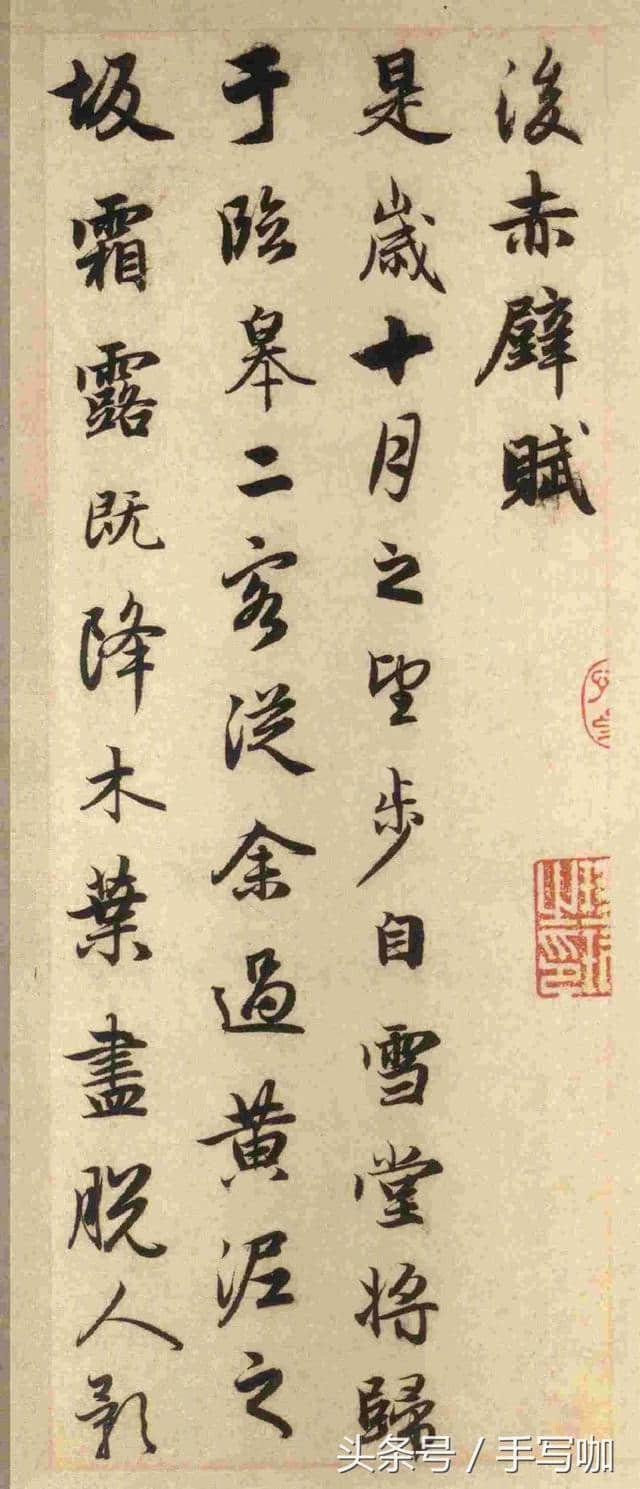 後赤壁賦
是歲十月之望步自雪堂將歸
于臨皋二客從余過黃泥之
坂霜露既降木葉盡脫人影
头条号 / 手写咖